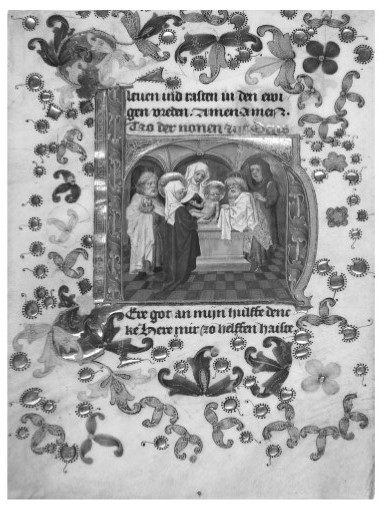 leuen ind rasten in den ewi
gen vreden. Amen Amen.
Tzo der nonen
Ere got an mijn hulffe denc
ke Here mir tzo helffen haiste